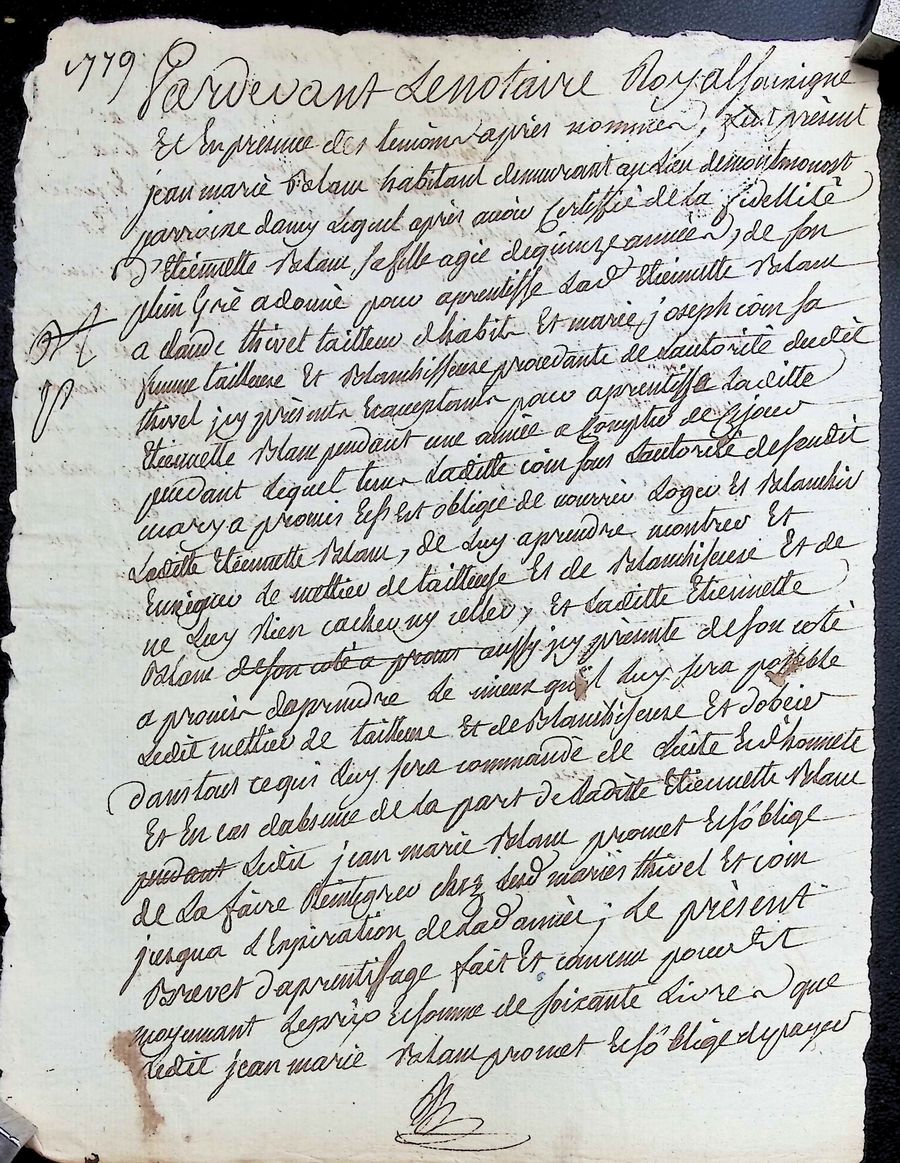 1779.
Pardevant Le notaire Royal Soussigné
Et En présence des temoins après nommés, fut présent
jean marie Blanc habitant demeurant au Lieu de montmonost
parroisse damy Lequel après avoir Certiffié de La fidellité
d'Etiennette Blanc sa fille agée de quinze années, de son
plein Gré a donné pour aprentisse Lad. Etiennette Blanc
a claude thivel tailleur d'habits Et marie joseph coin sa
femme tailleuse Et Blanchisseuse procedante de L'autorité dudit
thivel jcy présents Et acceptants pour aprentisse Laditte
Etiennette Blanc pendant une année a Compter de ce jour
pendant Lequel tems Laditte coin sous L'autorité de sondit
mary a promis Et s'Est obligée de nourrir Loger Et Blanchir
Laditte Etiennette Blanc, de Luy aprendre montrer Et
Enseigner Le mettier de tailleuse Et de Blanchisseuse Et de
ne Luy Rien cacher ny celler, Et Laditte Etiennette
Blanc de son coté a promis aussy jcy présente de son coté
a promis daprendre Le mieux qu'il Luy sera possible
Ledit mettier de tailleuse Et de Blanchisseuse Et dobeir
dans tous ce qui Luy sera commandé de Licite Et d'honnete
Et En cas dabsence de La part de Laditte Etiennette Blanc
pendant Ledit jean marie Blanc promet Et s'oblige
de La faire Reintegrer chez Lesd. mariés thivel Et coin
jusqua L'Expiration de Lad. année ; Le présent
Brevet d'aprentissage fait Et convenu pour Et
moyennant Le prix Et somme de soixante Livres que
Ledit jean marie Blanc promet Et s'oblige de payer